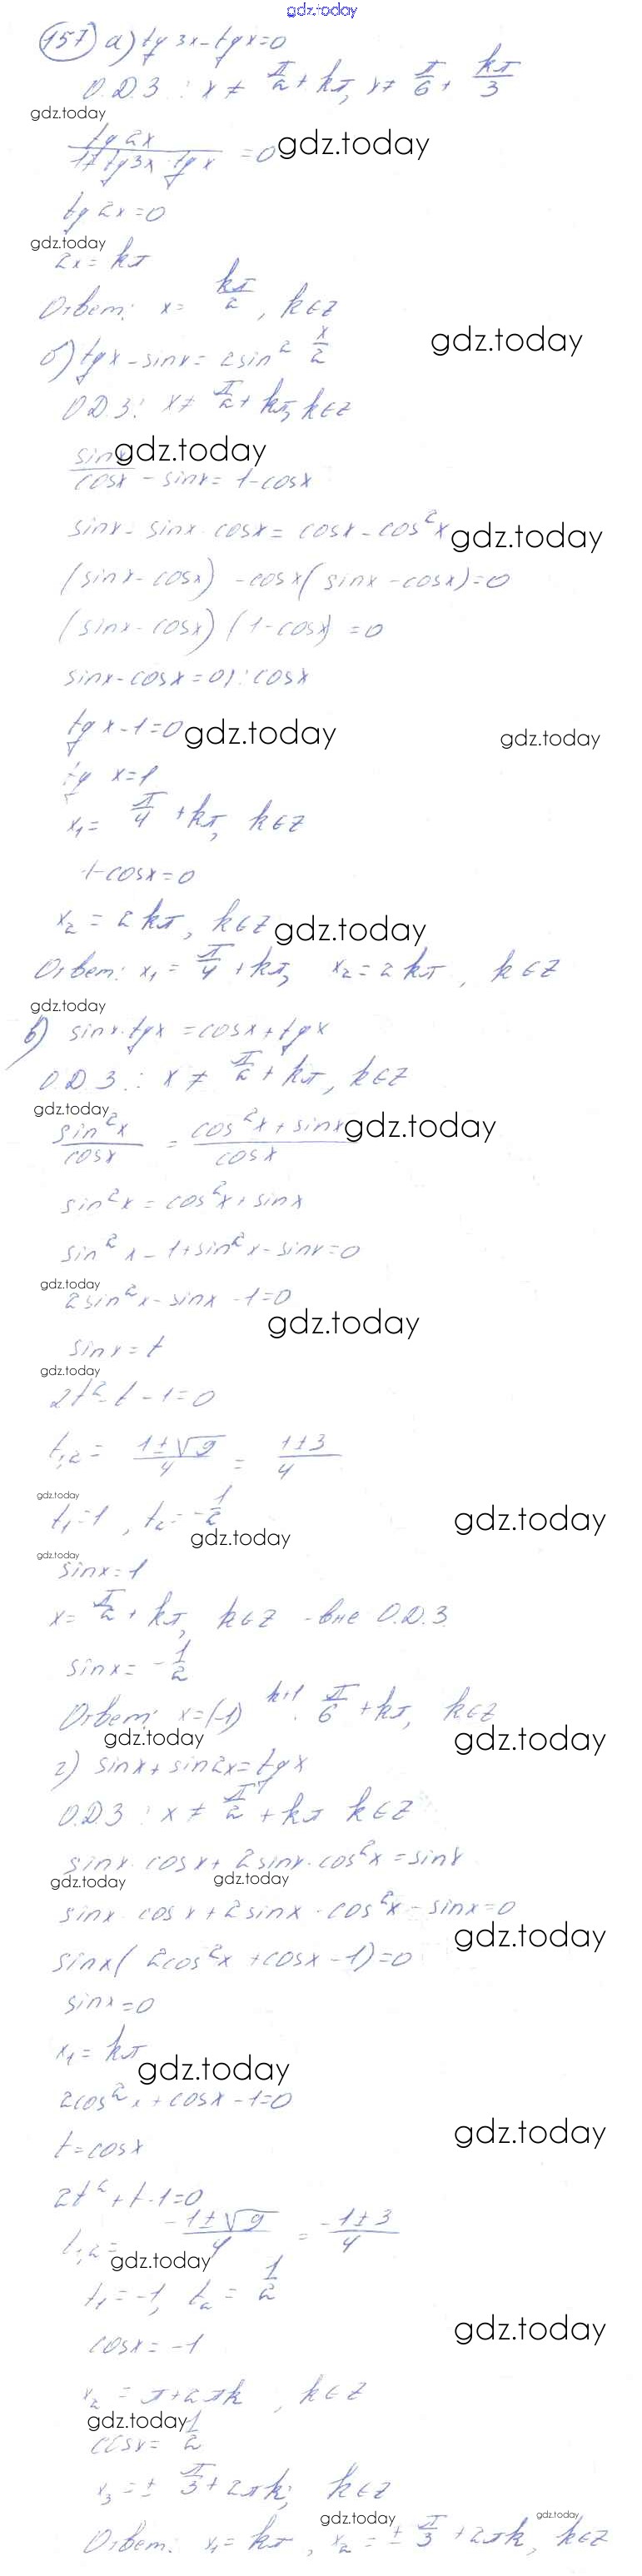 gdz.today
157) а) tg 3x - tg x = 0
О.Д.З : x ≠ π/2 + kπ, x ≠ π/6 + kπ/3
gdz.today
tg 2x / 1+tg3x·tg x = 0 gdz.today
tg 2x = 0
gdz.today
2x = kπ
Ответ: x = kπ/2, k∈Z
gdz.today
б) tg x - sin x = 2sin² x/2
О.Д.З: x ≠ π/2 + kπ, k∈Z
gdz.today
sin x/cos x - sin x = 1 - cos x
sin x - sin x · cos x = cos x - cos² x gdz.today
(sin x - cos x) - cos x (sin x - cos x) = 0
(sin x - cos x) (1 - cos x) = 0
sin x - cos x = 0 | : cos x
tg x - 1 = 0 gdz.today gdz.today
tg x = 1
x₁ = π/4 + kπ, k∈Z
1 - cos x = 0
x₂ = 2kπ, k∈Z gdz.today
Ответ: x₁ = π/4 + kπ, x₂ = 2kπ, k∈Z
gdz.today
в) sin x · tg x = cos x + tg x
О.Д.З : x ≠ π/2 + kπ, k∈Z
gdz.today
sin² x/cos x = cos² x + sin x/cos x gdz.today
sin² x = cos² x + sin x
sin² x - 1 + sin² x - sin x = 0
gdz.today
2sin² x - sin x - 1 = 0
gdz.today
sin x = t
gdz.today
2t² - t - 1 = 0
t₁,₂ = 1±√9/4 = 1±3/4
gdz.today
t₁ = 1, t₂ = -1/2 gdz.today
gdz.today
gdz.today
sin x = 1
x = π/2 + kπ, k∈Z - вне О.Д.З.
sin x = -1/2
Ответ: x = (-1)^k+1 · π/6 + kπ, k∈Z
gdz.today gdz.today
г) sin x + sin 2x = tg x
О.Д.З : x ≠ π/2 + kπ k∈Z
sin x · cos x + 2sin x · cos² x = sin x
gdz.today gdz.today
sin x · cos x + 2 sin x · cos² x - sin x = 0
gdz.today
sin x ( 2cos² x + cos x - 1) = 0
sin x = 0
x₁ = kπ
gdz.today
2cos² x + cos x - 1 = 0
gdz.today
t = cos x
2t² + t - 1 = 0
t₁,₂ = -1±√9/4 = -1±3/4
gdz.today
t₁ = -1, t₂ = 1/2
gdz.today
cos x = -1
x₂ = π + 2πk, k∈Z
gdz.today
cos x = 1/2
x₃ = ± π/3 + 2πk, k∈Z
gdz.today gdz.today
Ответ: x₁ = kπ, x₂ = ± π/3 + 2πk, k∈Z